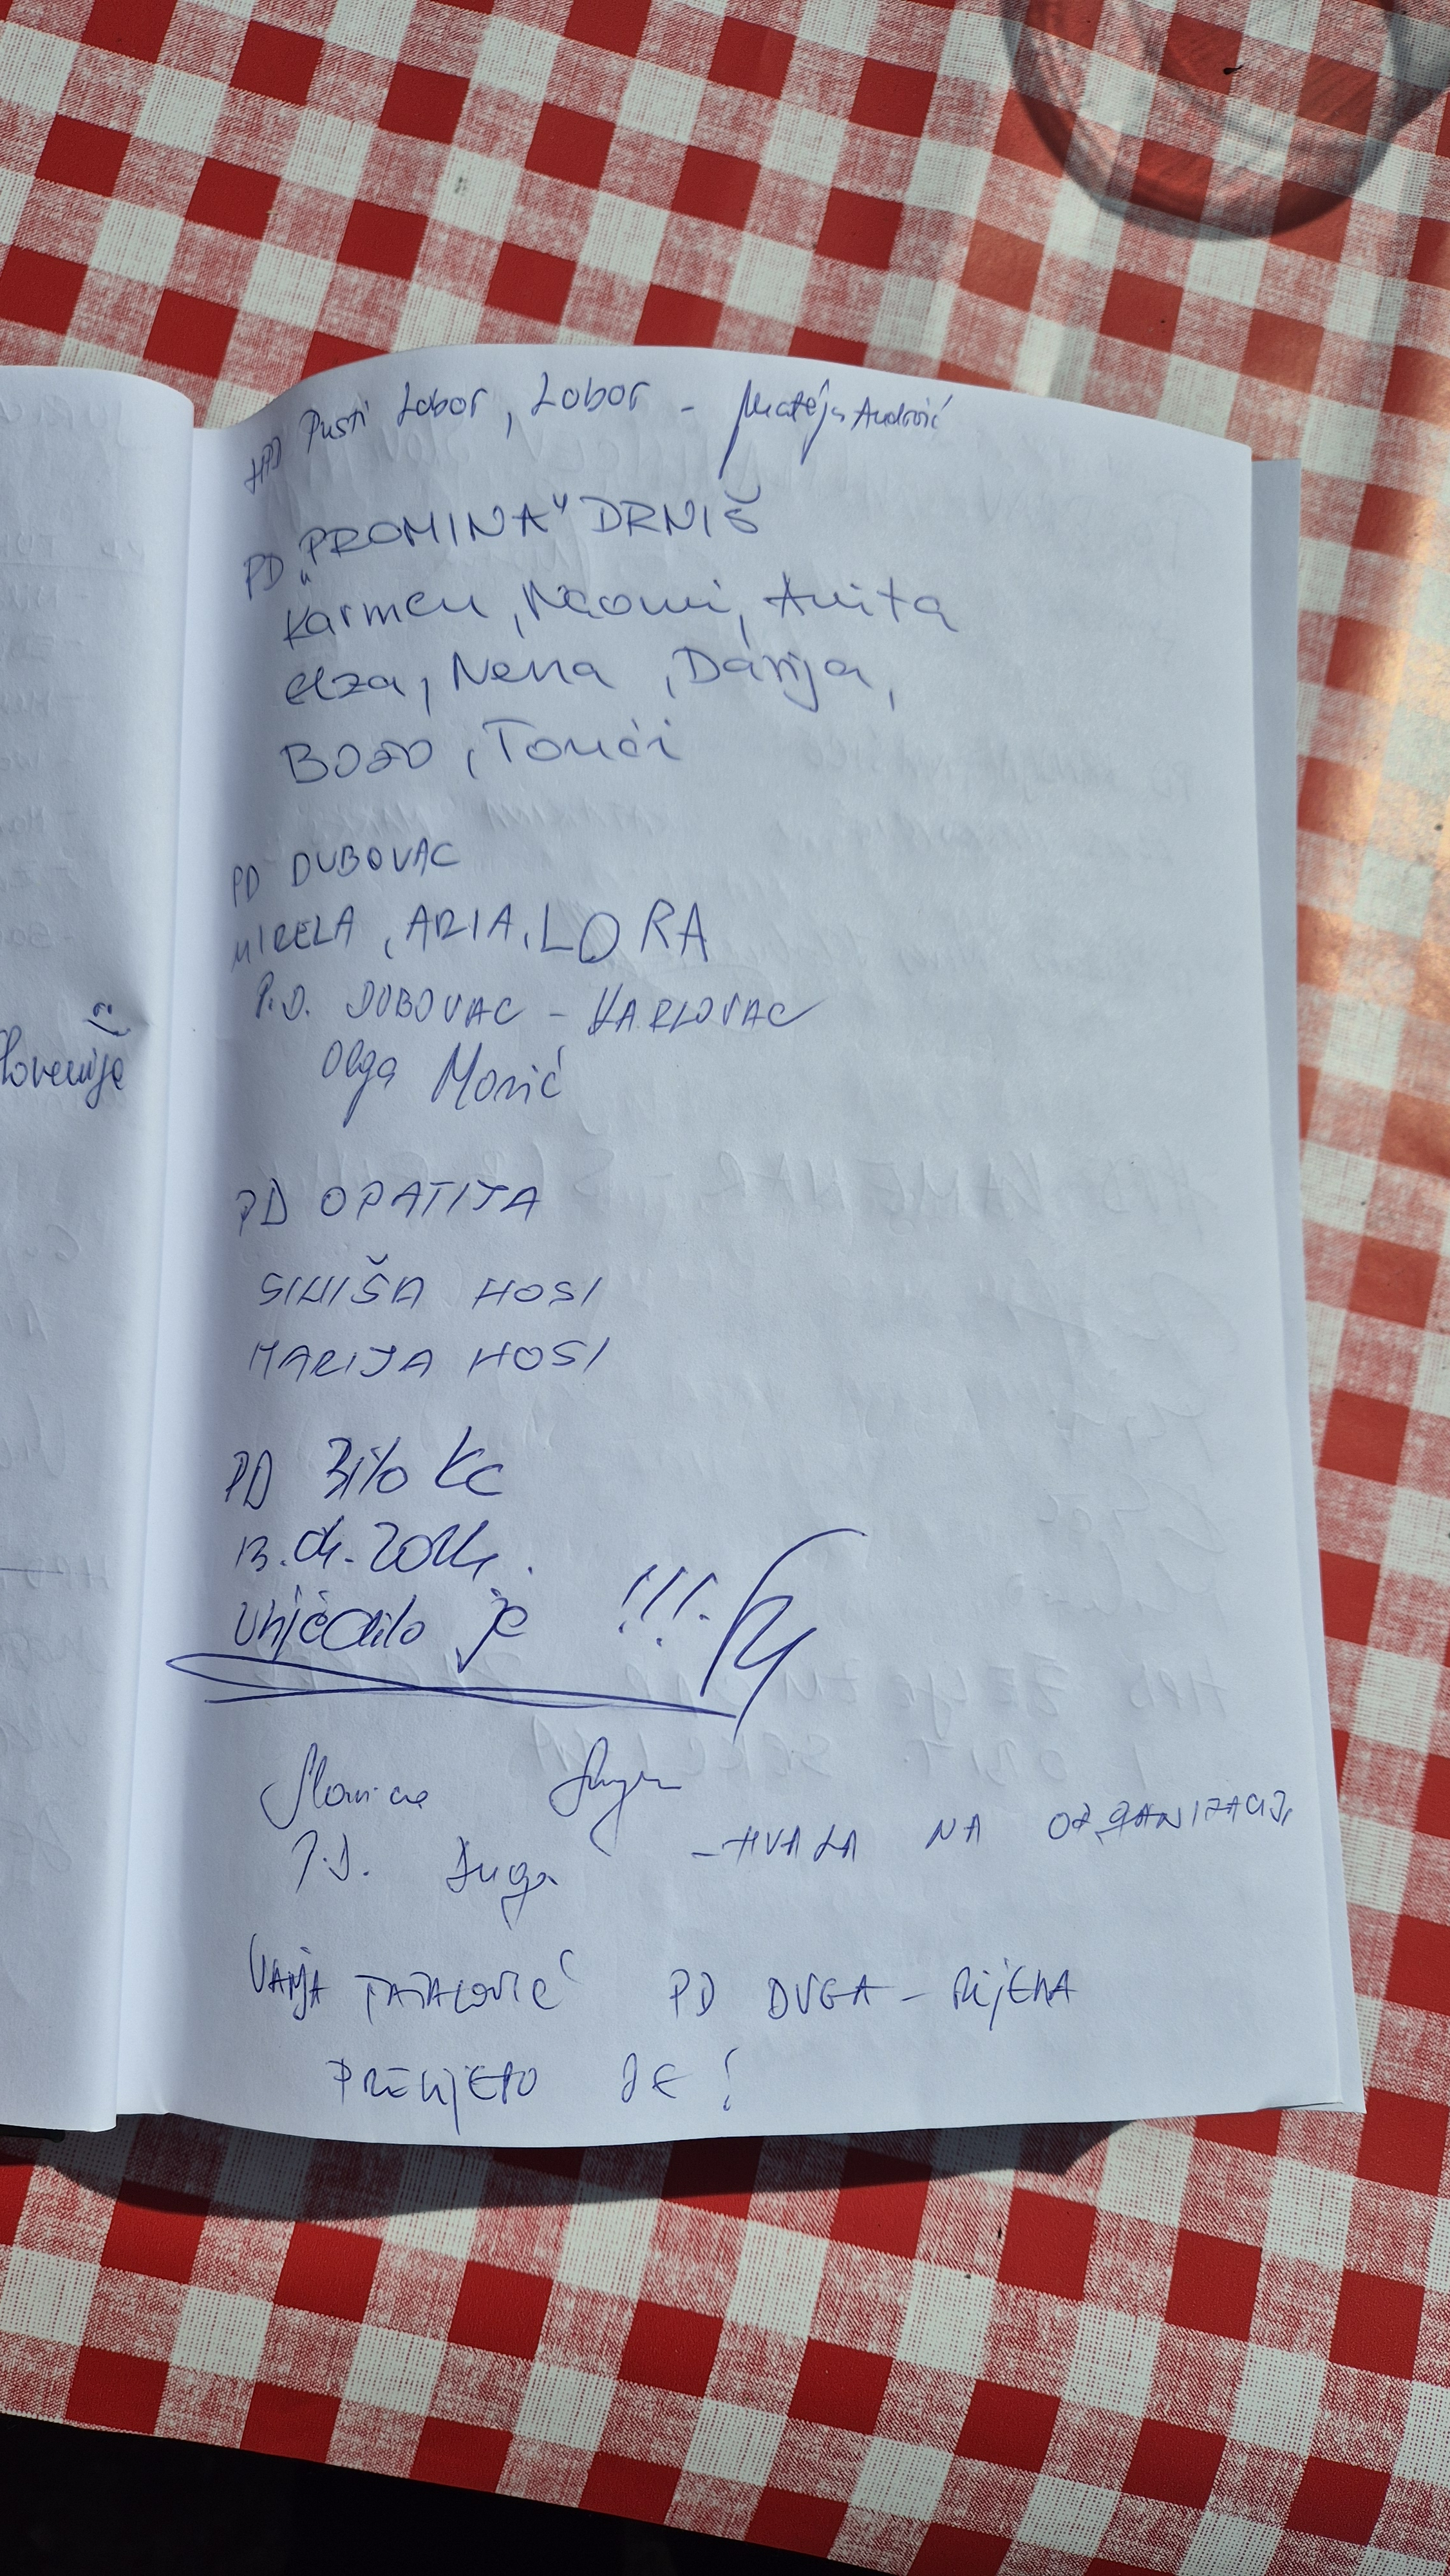 Slovenije
HPD Pusti Lobor, Lobor - Mateja Androić
PD „PROMINA" DRNIŠ
Karmen, Naomi, Anita
elza, Nena, Darija,
BOŽO, Tonći
PD DUBOVAC
MIRELA, ARIA, LORA
P.D. DUBOVAC - KARLOVAC
Olga
PD OPATIJA
SINIŠA HOSI
MARIJA HOSI
PD Bilo KC
13.04.2024.
Vrijedilo je !!!.
P.D. Duga - HVALA NA ORGANIZACIJI
VANJA TATALOVIĆ PD DUGA - RIJEKA
PRELIJEPO JE!